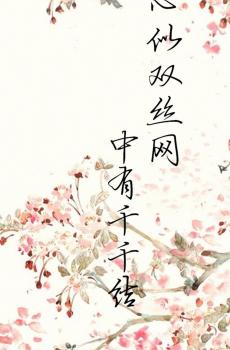 似双丝网
中有千千结